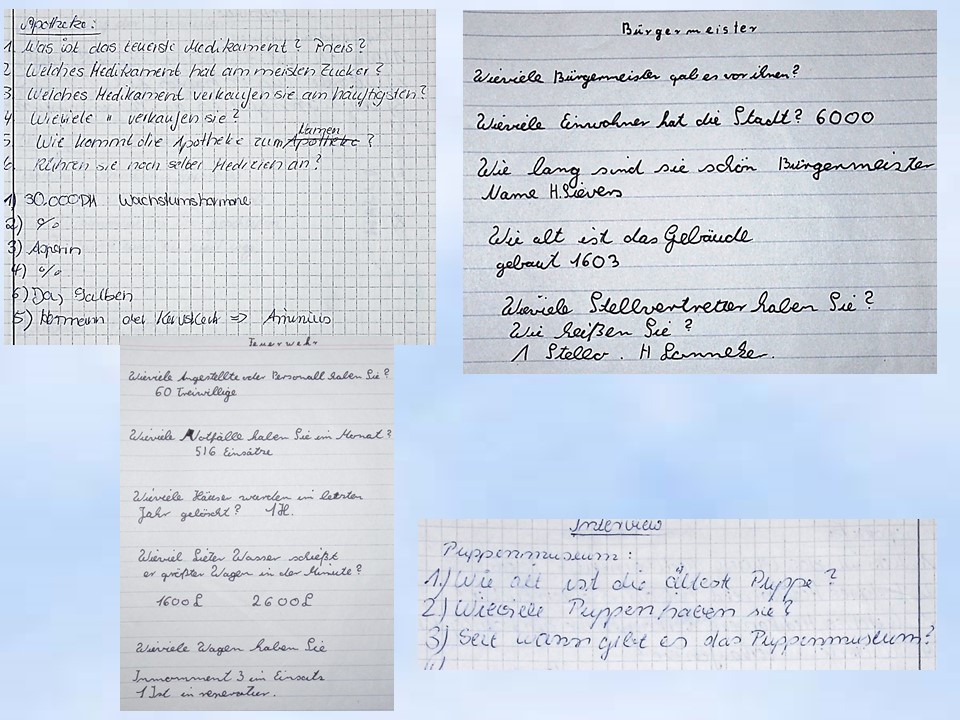 Apotheke:
1. Was ist das teuerste Medikament? Preis?
2. Welches Medikament hat am meisten Zucker?
3. Welches Medikament verkaufen sie am häufigsten?
4. Wieviele " verkaufen sie?
Namen
5. Wie kommt die Apotheke zum Apotheke?
6. Rühren sie noch selber Medizien an?
1) 30.000DM Wachstumshormone
2) %
3) Asperin
4) %
6) Da, Salben
5) Hermann der Keruskerk => Aminius
Bürgermeister
Wieviele Bürgemeister gab es vor ihnen?
Wieviele Einwohner hat die Stadt? 6000
Wie lang sind sie schön Bürgenmeister
Name H. Sievers
Wie alt ist das Gebäude
gebaut 1603
Wieviele Stellvertretter haben Sie?
Wie heißen Sie?
1 Stellv. H
Feuerwehr
Wieviele Angestellte oder Personall haben Sie?
60 Freiwillige
Wieviele Notfälle haben Sie im Monat?
516 Einsätze
Wieviele Häuser wurden im letzten
Jahr gelöscht? 1H.
Wieviel Lieter Wasser schießt
er größter Wagen in der Minute?
1600L 2600L
Wieviele Wagen haben Sie
Immomment 3 im Einsats
1 Ist in
Interview
Puppenmuseum:
1.) Wie alt ist die älteste Puppe?
2) Wieviele Puppen haben sie?
3) Seit wann gibt es das Puppenmuseum?